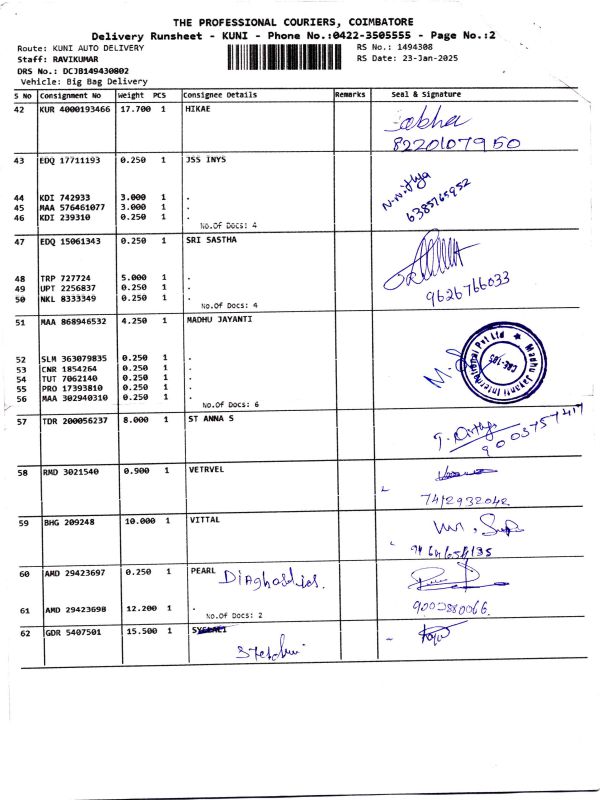 THE PROFESSIONAL COURIERS, COIMBATORE
Delivery Runsheet - KUNI - Phone No.:0422-3505555 - Page No.:2
Route: KUNI AUTO DELIVERY
RS No.: 1494308
Staff: RAVIKUMAR
RS Date: 23-Jan-2025
DRS No.: DCJB149430802
Vehicle: Big Bag Delivery
S No Consignment No Weight PCS Consignee Details Remarks Seal & Signature
42 KUR 4000193466 17.700 1 HIKAE
8220107950
43 EDQ 17711193 0.250 1 JSS INYS
44 KDI 742933 3.000 1 .
45 MAA 576461077 3.000 1 .
46 KDI 239310 0.250 1 .
No.Of Docs: 4
N.Nithya
6385765952
47 EDQ 15061343 0.250 1 SRI SASTHA
48 TRP 727724 5.000 1 .
49 UPT 2256837 0.250 1 .
50 NKL 8333349 0.250 1 .
No.Of Docs: 4
9626766033
51 MAA 868946532 4.250 1 MADHU JAYANTI
52 SLM 363079835 0.250 1 .
53 CNR 1854264 0.250 1 .
54 TUT 7062140 0.250 1 .
55 PRO 17393810 0.250 1 .
56 MAA 302940310 0.250 1 .
No.Of Docs: 6
Madhu Jayanti International Pvt Ltd
CBE-105
57 TDR 200056237 8.000 1 ST ANNA S
9003757417
58 RMD 3021540 0.900 1 VETRVEL
7412932042
59 BHG 209248 10.000 1 VITTAL
60 AMD 29423697 0.250 1 PEARL Diagnostics.
61 AMD 29423698 12.200 1 .
No.Of Docs: 2
62 GDR 5407501 15.500 1